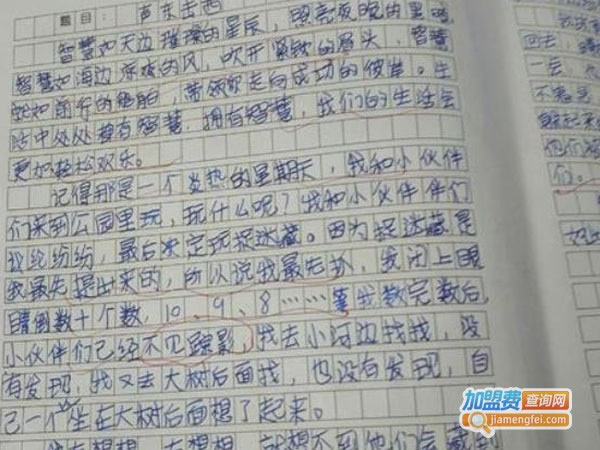 题目： 声东击西
智慧如天边璀璨的星辰，照亮夜晚的黑暗，
智慧如海边凉爽的风，吹开紧皱的眉头，智慧
如前行的船舶，带领你走向成功的彼岸。生
活中处处都有智慧，拥有智慧，我们的生活会
更加轻松欢乐。
记得那是一个炎热的星期天，我和小伙伴
们来到公园里玩，玩什么呢？我和小伙伴们
议论纷纷，最后决定玩捉迷藏。因为捉迷藏是
我最先提出来的，所以说我最先抓，我闭上眼
睛倒数十个数，10、9、8……等我数完数后，
小伙伴们已经不见踪影，我去小河边找找，没
有发现，我又去大树后面找，也没有发现，自
己一个人坐在大树后面想了起来。
左想想，就想不到他们会藏到
回去，
一会，
不愿意
们。
加盟费查询网
jiamengfei.com